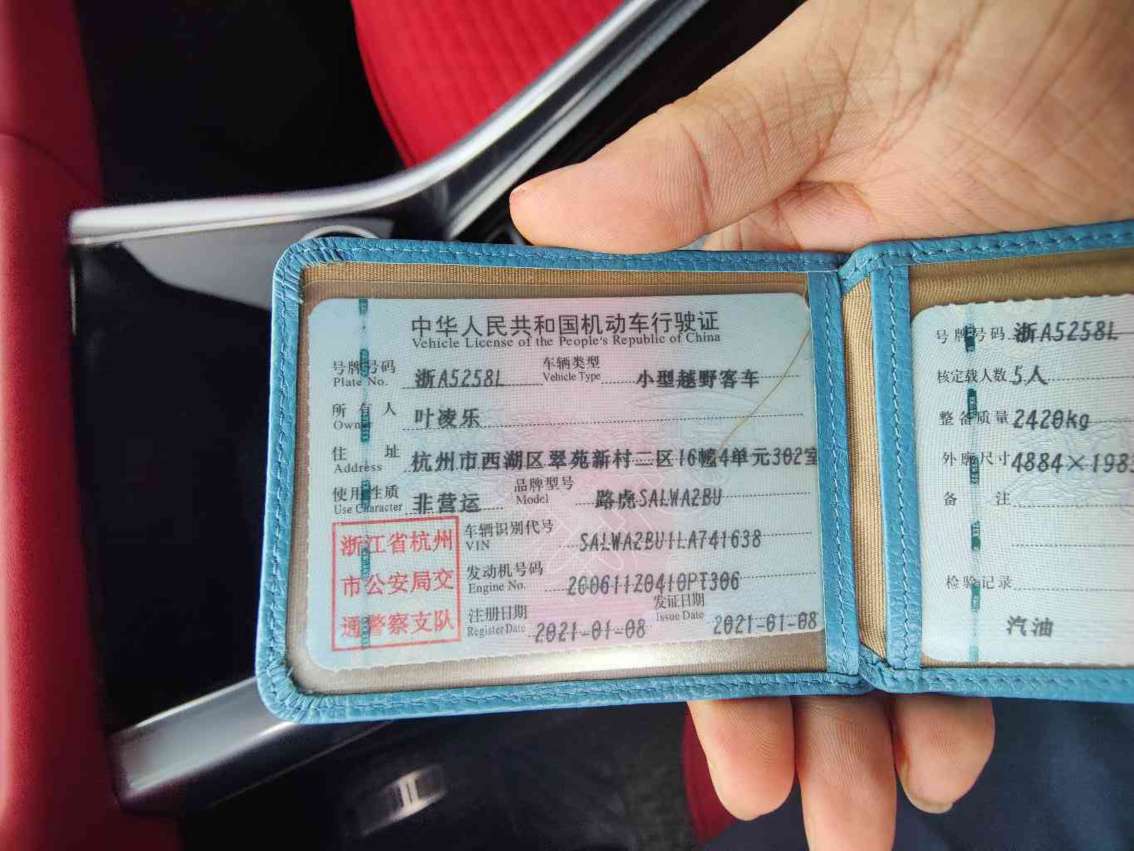 中华人民共和国机动车行驶证
Vehicle License of the People's Republic of China
号牌号码 浙A5258L 车辆类型 小型越野客车
Plate No. Vehicle Type
所有人 叶凌乐
Owner
住址 杭州市西湖区翠苑新村二区16幢4单元302室
Address
使用性质 非营运 品牌型号 路虎SALWA2BU
Use Character Model
浙江省杭州
市公安局交
通警察支队
车辆识别代号 SALWA2BU1LA741638
VIN
发动机号码 200611Z0410PT306
Engine No.
注册日期 2021-01-08 发证日期 2021-01-08
Register Date Issue Date
号牌号码 浙A5258L
核定载人数 5人
整备质量 2420kg
外廓尺寸 4884×1983
备注
检验记录
汽油